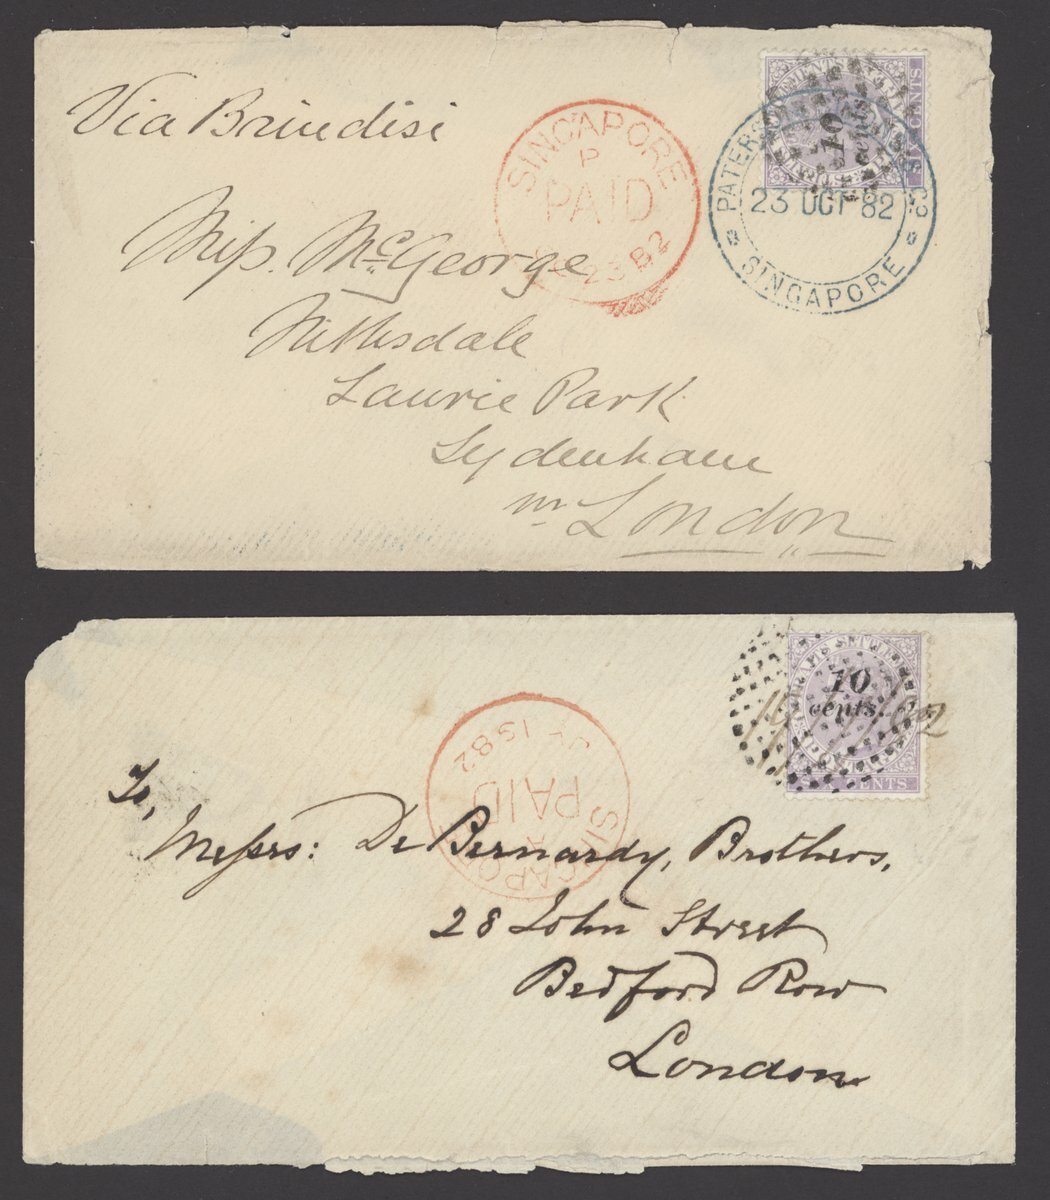 Via Brindisi
SINGAPORE
P
PAID
23 82
10
cents
23 OCT 82
SINGAPORE
Miss. McGeorge
Nithsdale
Laurie Park
Sydenham
nr London
10
cents.
SIX CENTS
SINGAPORE
A
PAID
JY 19 82
To,
Messrs: De Bernardy, Brothers,
28 John Street
Bedford Row
London